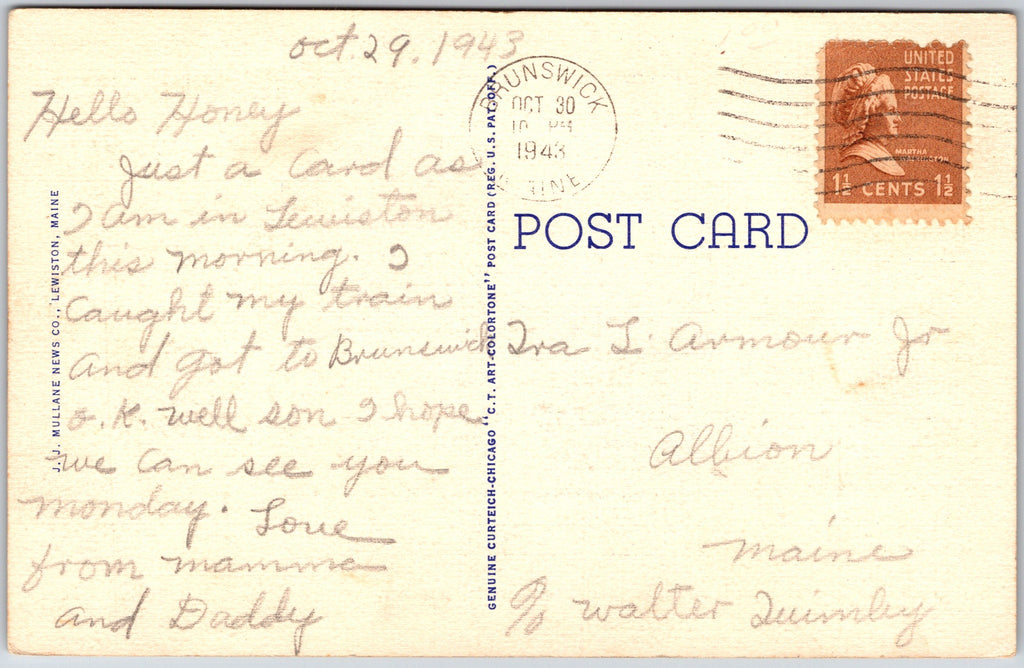 oct. 29. 1943
Hello Honey
Just a Card as
I am in Lewiston
this morning. I
Caught my train
and got to Brunswick
o.K. well son I hope
we can see you
monday. Love
from mamma
and Daddy
J. J. MULLANE NEWS CO., LEWISTON, MAINE
GENUINE CURTEICH-CHICAGO "C.T. ART-COLORTONE" POST CARD (REG. U.S. PAT. OFF.)
BRUNSWICK
OCT 30
10 PM
1943
MAINE
UNITED
STATES
POSTAGE
MARTHA
WASHINGTON
1½ CENTS 1½
POST CARD
Ira L. Armour Jr
Albion
maine
c/o walter Quimby